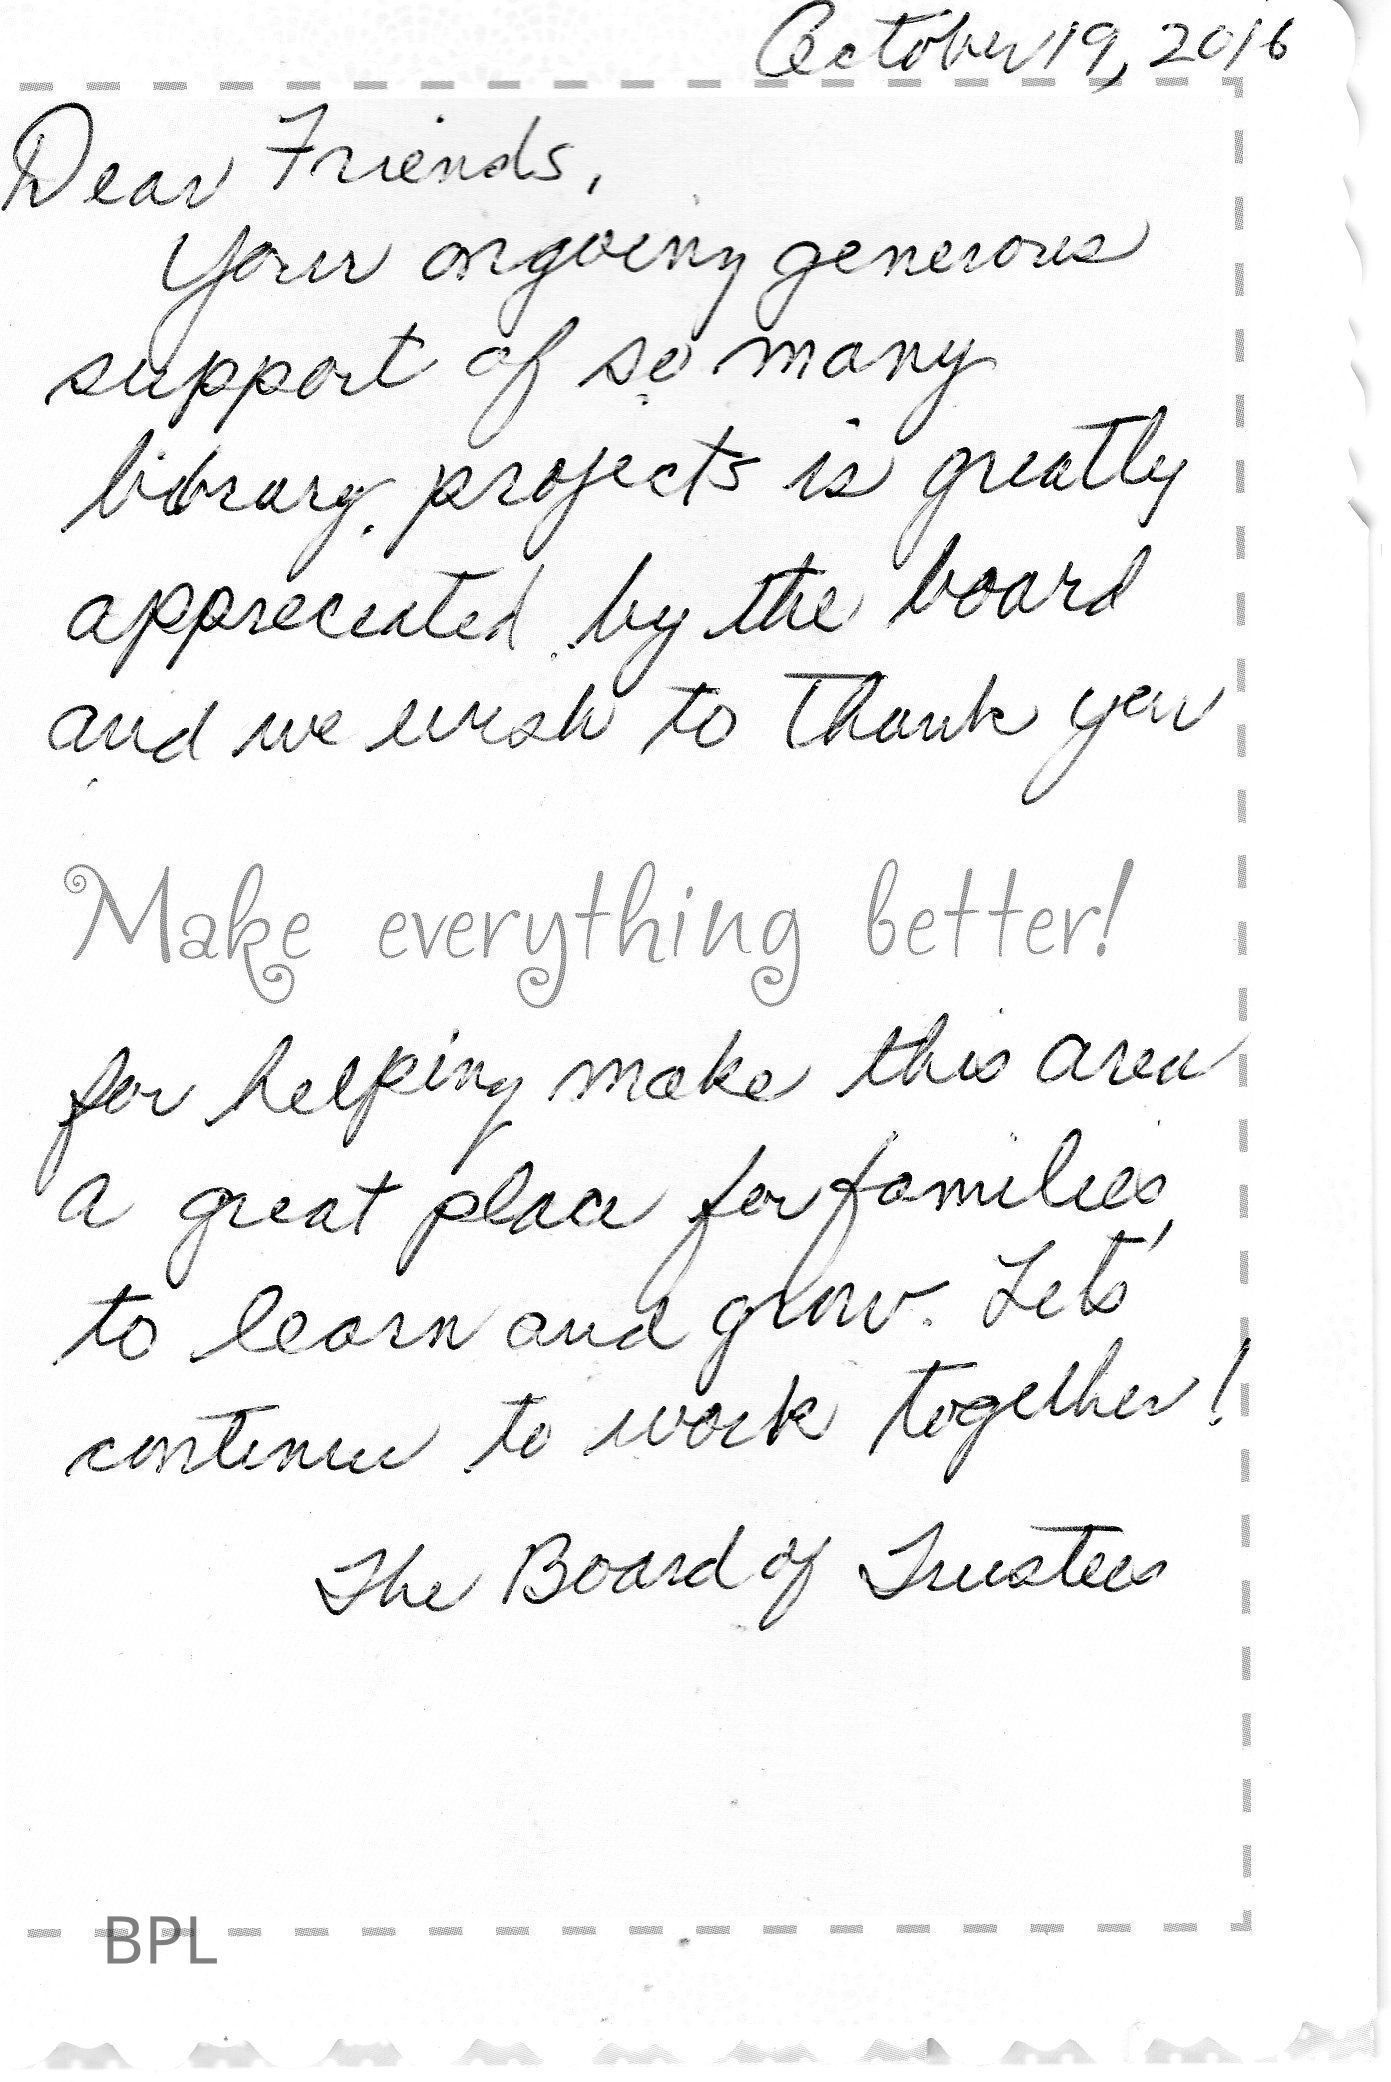 October 19, 2016
Dear Friends,
Your ongoing generous
support of so many
library projects is greatly
appreciated by the board
and we wish to Thank you
Make everything better!
for helping make this area
a great place for families,
to learn and grow. Let's
continue to work together!
The Board of Trustees
BPL